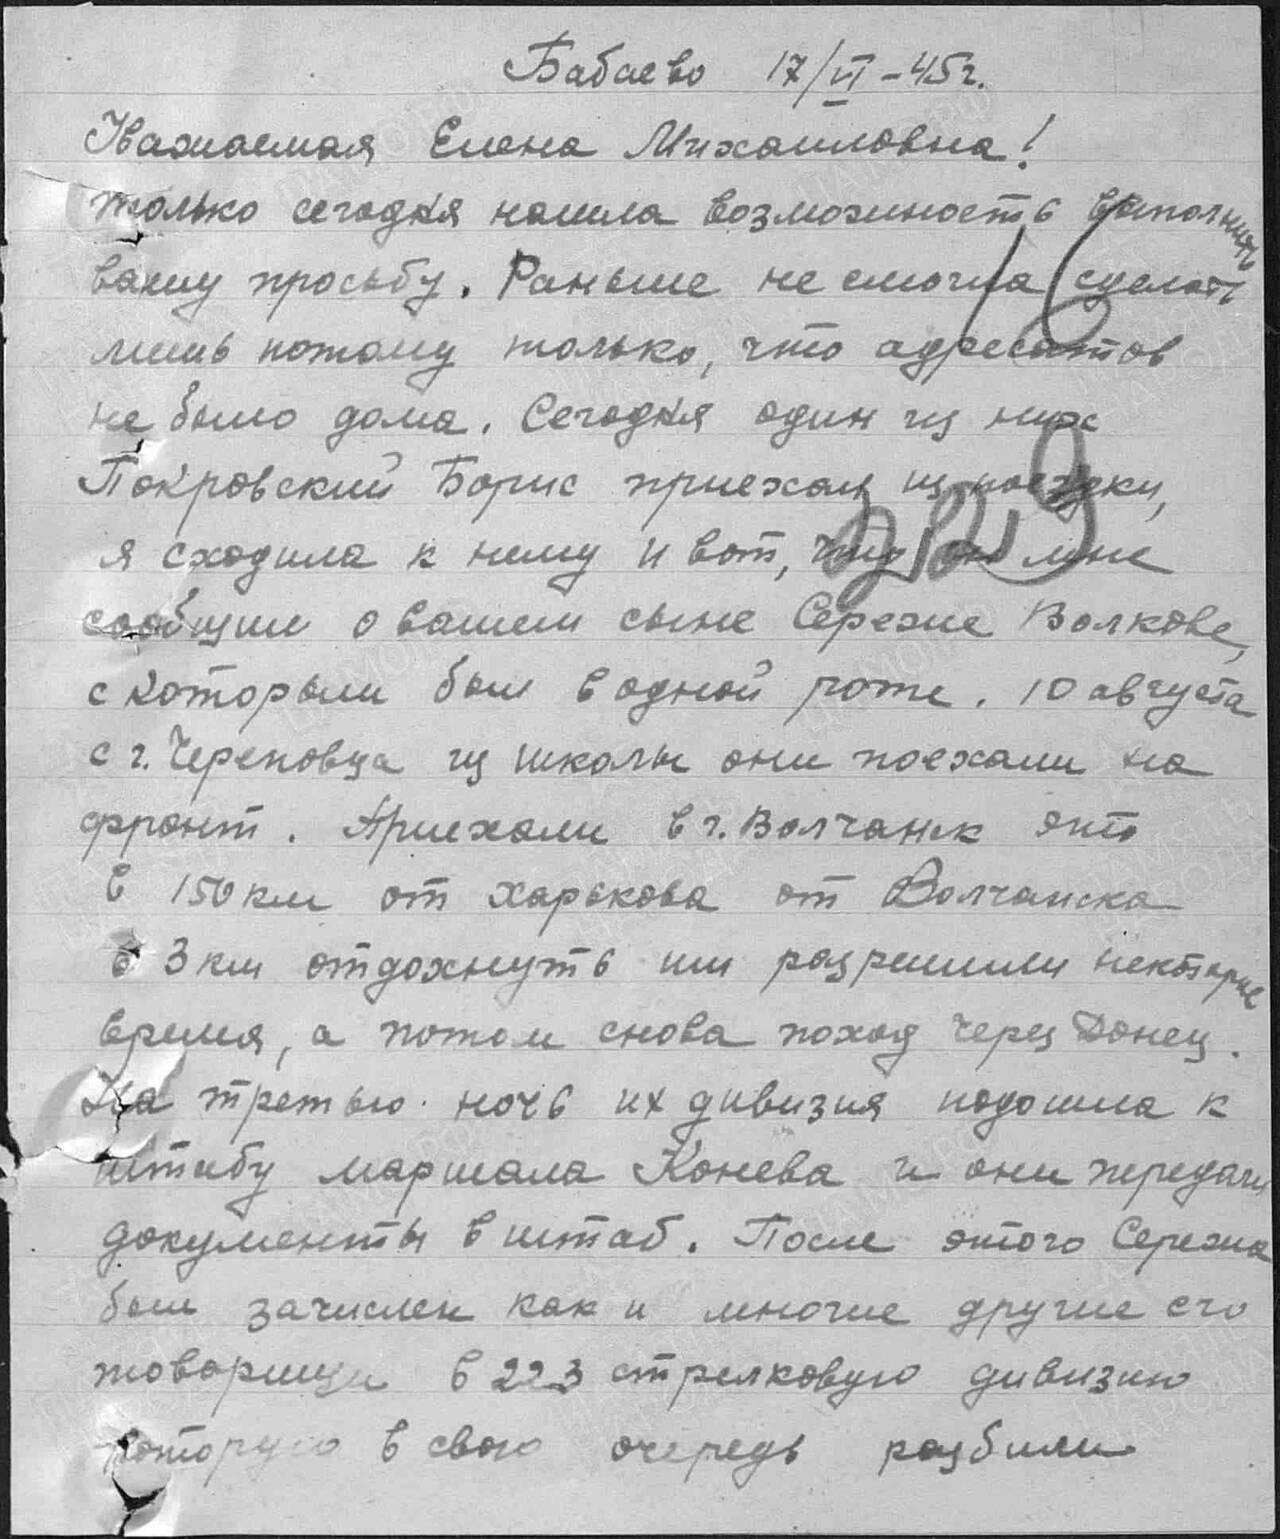 Бабаево 17/VI-45г.
Уважаемая Елена Михаиловна!
только сегодня нашла возможность выполнить
вашу просьбу. Раньше не смогла сделать
лишь потому только, что адресатов
не было дома. Сегодня один из них
Покровский Борис приехал из поездки,
я сходила к нему и вот, что он мне
сообщил о вашем сыне Сереже Волкове,
с которым был в одной роте. 10 августа
с г. Череповца из школы они поехали на
фронт. Приехали в г. Волчанск это
в 150 км от Харькова от Волчанска
в 3 км отдохнуть им разрешили некоторые
время, а потом снова поход через Донец.
На третью ночь их дивизия подошла к
штабу маршала Конева и они передали
документы в штаб. После этого Сережа
был зачислен как и многие другие его
товарищи в 223 стрелковую дивизию
которую в свою очередь разбили